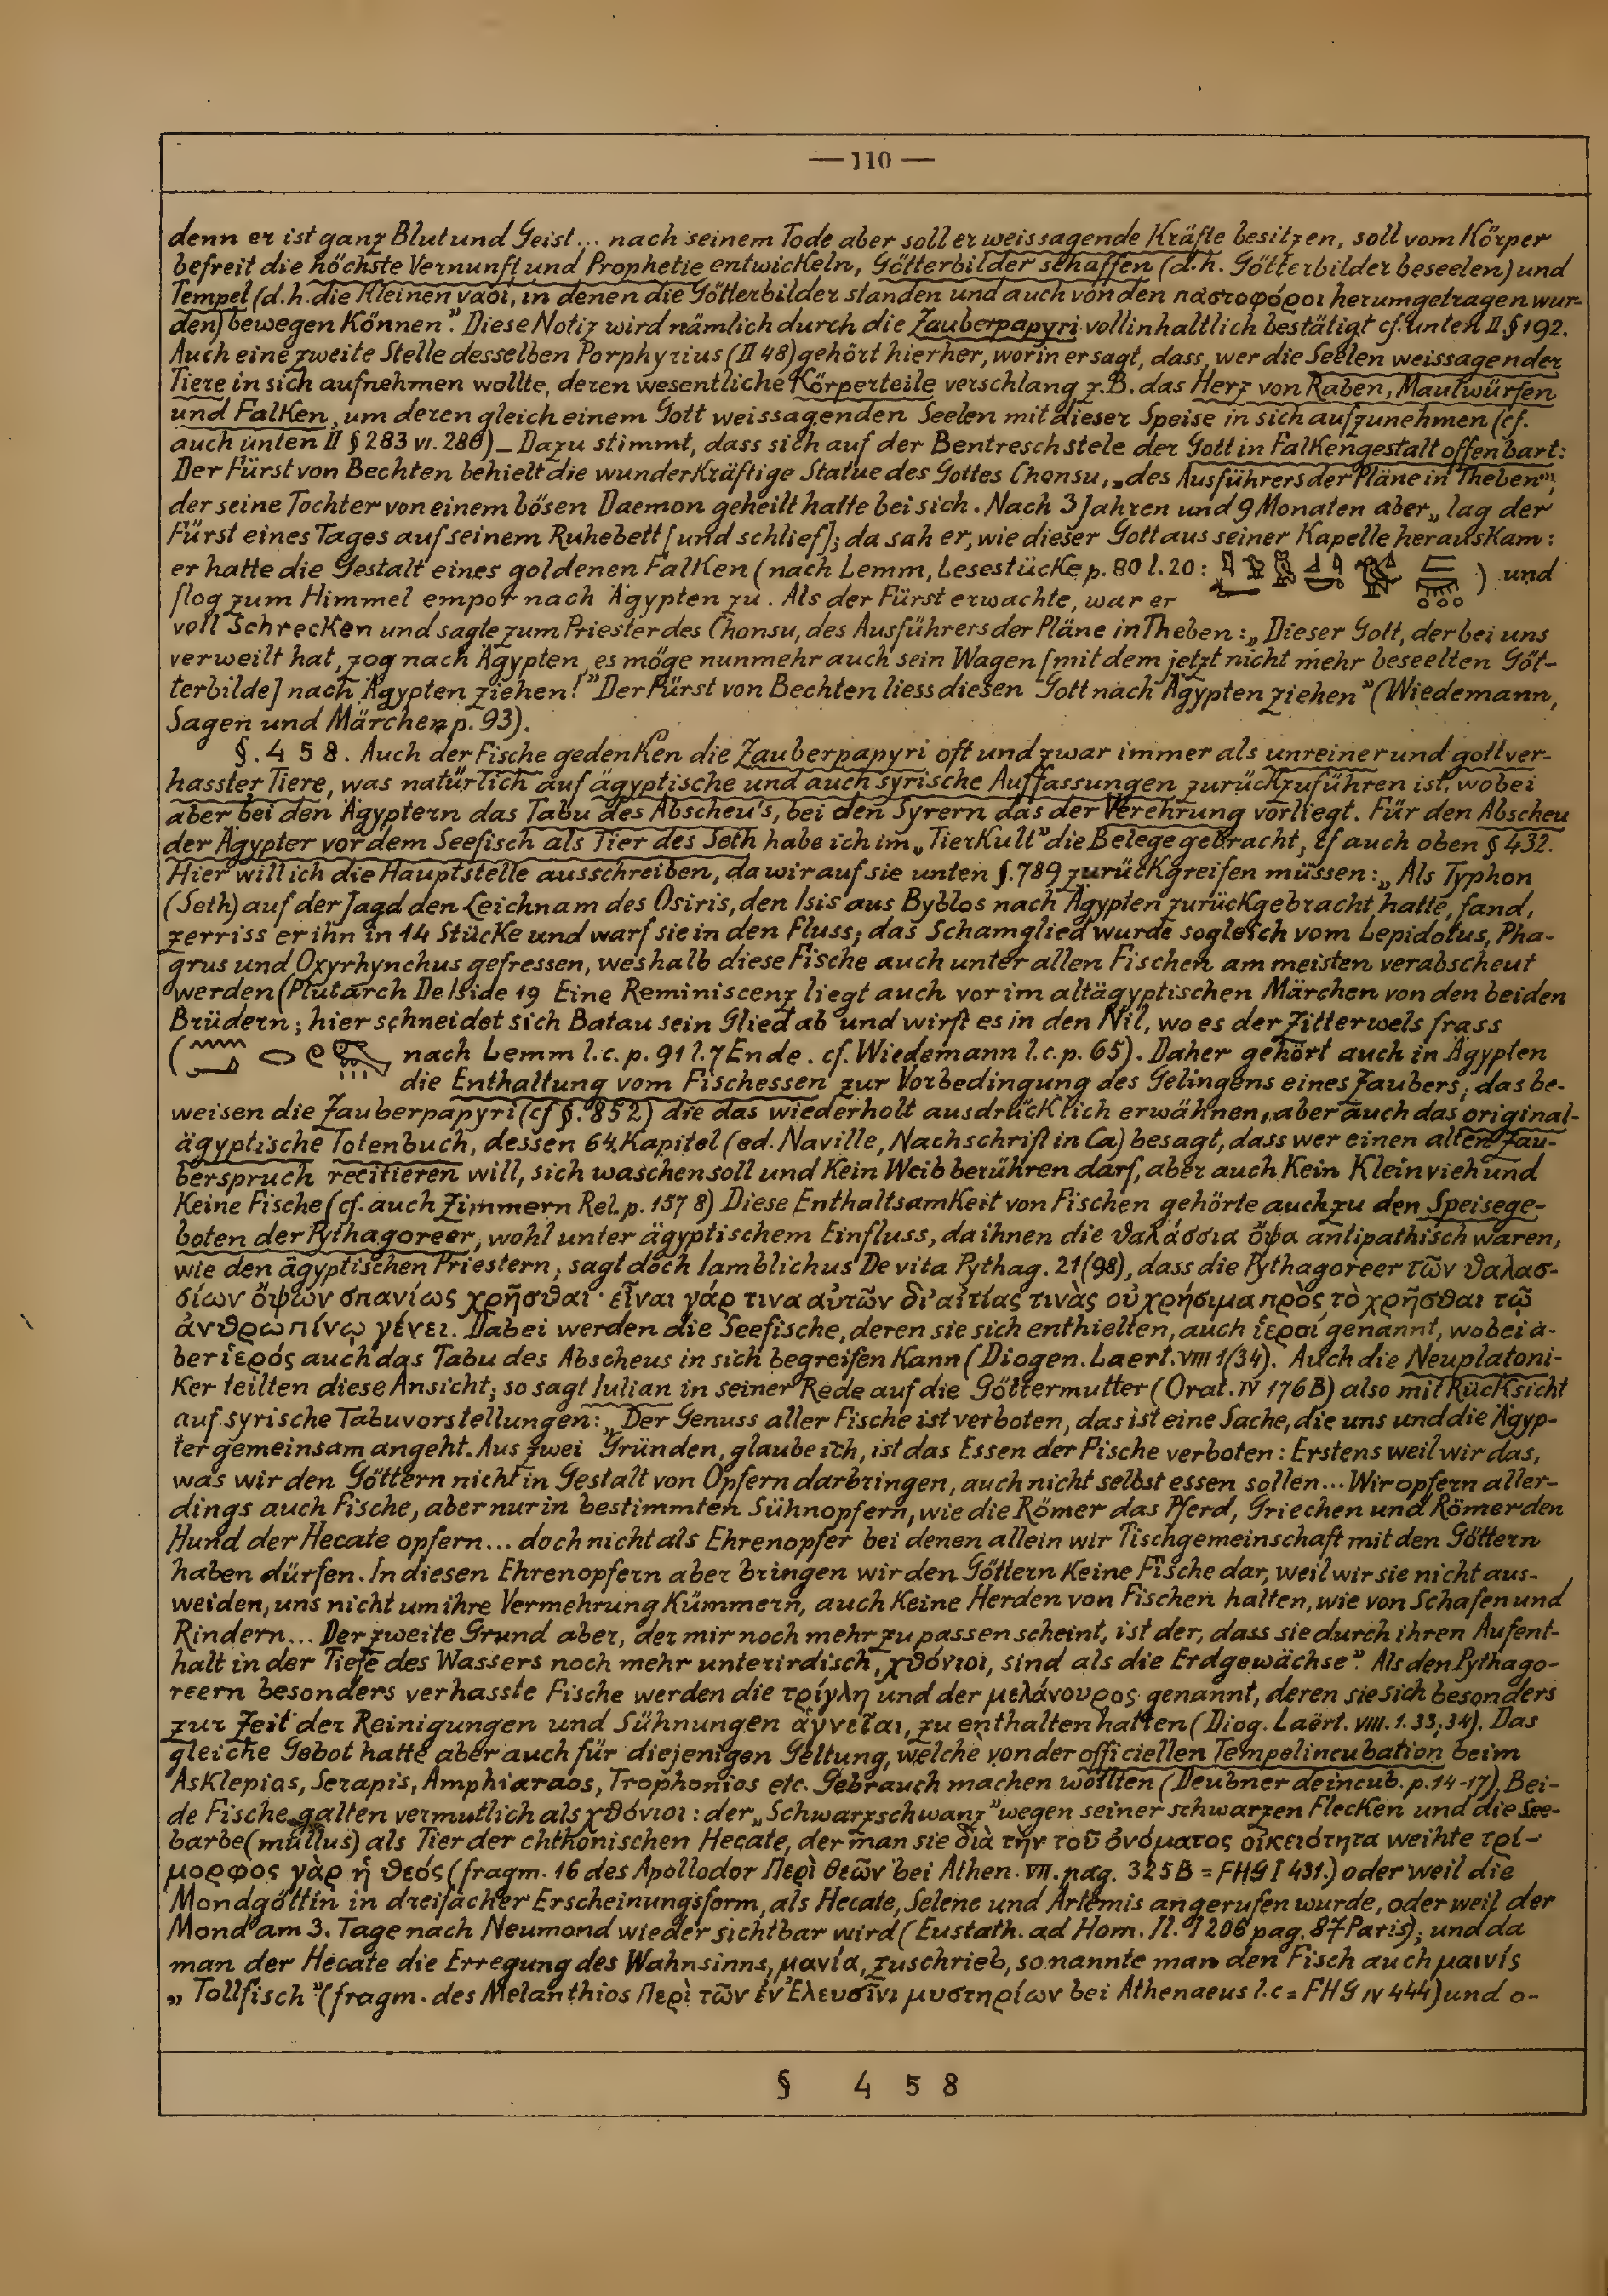 — 110 —
denn er ist ganz Blut und Geist... nach seinem Tode aber soll er weissagende Kräfte besitzen, soll vom Körper
befreit die höchste Vernunft und Prophetie entwickeln, Götterbilder schaffen (d.h. Götterbilder beseelen) und
Tempel (d.h. die kleinen ναοι, in denen die Götterbilder standen und auch von den παστοφόροι herumgetragen wur-
den) bewegen können". Diese Notiz wird nämlich durch die Zauberpapyri vollinhaltlich bestätigt cf. unten II. § 192.
Auch eine zweite Stelle desselben Porphyrius (II 48) gehört hierher, worin er sagt, dass, wer die Seelen weissagender
Tiere in sich aufnehmen wollte, deren wesentliche Körperteile verschlang z.B. das Herz von Raben, Maulwürfen
und Falken, um deren gleich einem Gott weissagenden Seelen mit dieser Speise in sich aufzunehmen (cf.
auch unten II § 283 VI. 286) _ Dazu stimmt, dass sich auf der Bentreschstele der Gott in Falkengestalt offenbart:
Der Fürst von Bechten behielt die wunderkräftige Statue des Gottes Chonsu, „des Ausführers der Pläne in Theben",
der seine Tochter von einem bösen Daemon geheilt hatte bei sich. Nach 3 Jahren und 9 Monaten aber „lag der
Fürst eines Tages auf seinem Ruhebett [und schlief]; da sah er, wie dieser Gott aus seiner Kapelle herauskam:
er hatte die Gestalt eines goldenen Falken (nach Lemm, Lesestücke p. 80 l. 20: ) und
flog zum Himmel empor nach Ägypten zu. Als der Fürst erwachte, war er
voll Schrecken und sagte zum Priester des Chonsu, des Ausführers der Pläne in Theben: „Dieser Gott, der bei uns
verweilt hat, zog nach Ägypten, es möge nunmehr auch sein Wagen [mit dem jetzt nicht mehr beseelten Göt-
terbilde] nach Ägypten ziehen!" Der Fürst von Bechten liess diesen Gott nach Ägypten ziehen" (Wiedemann,
Sagen und Märchen p. 93).
§. 4 5 8. Auch der Fische gedenken die Zauberpapyri oft und zwar immer als unreiner und gottver-
hasster Tiere, was natürlich auf ägyptische und auch syrische Auffassungen zurückzuführen ist, wobei
aber bei den Ägyptern das Tabu des Abscheu's, bei den Syrern das der Verehrung vorliegt. Für den Abscheu
der Ägypter vor dem Seefisch als Tier des Seth habe ich im „Tierkult" die Belege gebracht, cf auch oben § 432.
Hier will ich die Hauptstelle ausschreiben, da wir auf sie unten §. 789 zurückgreifen müssen: „Als Typhon
(Seth) auf der Jagd den Leichnam des Osiris, den Isis aus Byblos nach Ägypten zurückgebracht hatte, fand,
zerriss er ihn in 14 Stücke und warf sie in den Fluss; das Schamglied wurde sogleich vom Lepidotus, Pha-
grus und Oxyrhynchus gefressen, weshalb diese Fische auch unter allen Fischen am meisten verabscheut
werden (Plutarch De Iside 19 Eine Reminiscenz liegt auch vor im altägyptischen Märchen von den beiden
Brüdern; hier schneidet sich Batau sein Glied ab und wirft es in den Nil, wo es der Zitterwels frass
( nach Lemm l.c. p. 91 l. 7 Ende. cf. Wiedemann l.c. p. 65). Daher gehört auch in Ägypten
die Enthaltung vom Fischessen zur Vorbedingung des Gelingens eines Zaubers; das be-
weisen die Zauberpapyri (cf §. 852) die das wiederholt ausdrücklich erwähnen, aber auch das original-
ägyptische Totenbuch, dessen 64. Kapitel (ed. Naville, Nachschrift in Ca) besagt, dass wer einen alten Zau-
berspruch recitieren will, sich waschen soll und kein Weib berühren darf, aber auch kein Kleinvieh und
keine Fische (cf. auch Zimmern Rel. p. 157 8) Diese Enthaltsamkeit von Fischen gehörte auch zu den Speisege-
boten der Pythagoreer, wohl unter ägyptischem Einfluss, da ihnen die θαλάσσια ὄψα antipathisch waren,
wie den ägyptischen Priestern; sagt doch Iamblichus De vita Pythag. 21 (98), dass die Pythagoreer τῶν θαλασ-
σίων ὄψων σπανίως χρῆσθαι· εἶναι γάρ τινα αὐτῶν δι' αἰτίας τινὰς οὐ χρήσιμα πρὸς τὸ χρῆσθαι τῷ
ἀνθρωπίνῳ γένει. Dabei werden die Seefische, deren sie sich enthielten, auch ἱεροί genannt, wobei a-
ber ἱερός auch das Tabu des Abscheus in sich begreifen kann (Diogen. Laert. VIII 1/34). Auch die Neuplatoni-
ker teilten diese Ansicht; so sagt Iulian in seiner Rede auf die Göttermutter (Orat. IV 176 B) also mit Rücksicht
auf syrische Tabuvorstellungen: „Der Genuss aller Fische ist verboten, das ist eine Sache, die uns und die Ägyp-
ter gemeinsam angeht. Aus zwei Gründen, glaube ich, ist das Essen der Fische verboten: Erstens weil wir das,
was wir den Göttern nicht in Gestalt von Opfern darbringen, auch nicht selbst essen sollen... Wir opfern aller-
dings auch Fische, aber nur in bestimmten Sühnopfern, wie die Römer das Pferd, Griechen und Römer den
Hund der Hecate opfern... doch nicht als Ehrenopfer bei denen allein wir Tischgemeinschaft mit den Göttern
haben dürfen. In diesen Ehrenopfern aber bringen wir den Göttern keine Fische dar, weil wir sie nicht aus-
weiden, uns nicht um ihre Vermehrung kümmern, auch keine Herden von Fischen halten, wie von Schafen und
Rindern... Der zweite Grund aber, der mir noch mehr zu passen scheint, ist der, dass sie durch ihren Aufent-
halt in der Tiefe des Wassers noch mehr unterirdisch, χθόνιοι, sind als die Erdgewächse". Als den Pythago-
reern besonders verhasste Fische werden die τρίγλη und der μελάνουρος genannt, deren sie sich besonders
zur Zeit der Reinigungen und Sühnungen ἁγνεῖαι, zu enthalten hatten (Diog. Laërt. VIII. 1. 33; 34). Das
gleiche Gebot hatte aber auch für diejenigen Geltung, welche von der officiellen Tempelincubation beim
Asklepios, Serapis, Amphiaraos, Trophonios etc. Gebrauch machen wollten (Deubner de incub. p. 14-17). Bei-
de Fische galten vermutlich als χθόνιοι: der „Schwarzschwanz" wegen seiner schwarzen Flecken und die See-
barbe (mullus) als Tier der chthonischen Hecate, der man sie διὰ τὴν τοῦ ὀνόματος οἰκειότητα weihte τρί-
μορφος γὰρ ἡ θεός (fragm. 16 des Apollodor Περὶ θεῶν bei Athen. VII. pag. 325 B = FHG I 431.) oder weil die
Mondgöttin in dreifacher Erscheinungsform, als Hecate, Selene und Artemis angerufen wurde, oder weil der
Mond am 3. Tage nach Neumond wieder sichtbar wird (Eustath. ad Hom. Il. 1206 pag. 87 Paris); und da
man der Hecate die Erregung des Wahnsinns, μανία, zuschrieb, so nannte man den Fisch auch μαινίς
„Tollfisch" (fragm. des Melanthios Περὶ τῶν ἐν Ἐλευσῖνι μυστηρίων bei Athenaeus l.c = FHG IV 444) und o-
§ 4 5 8